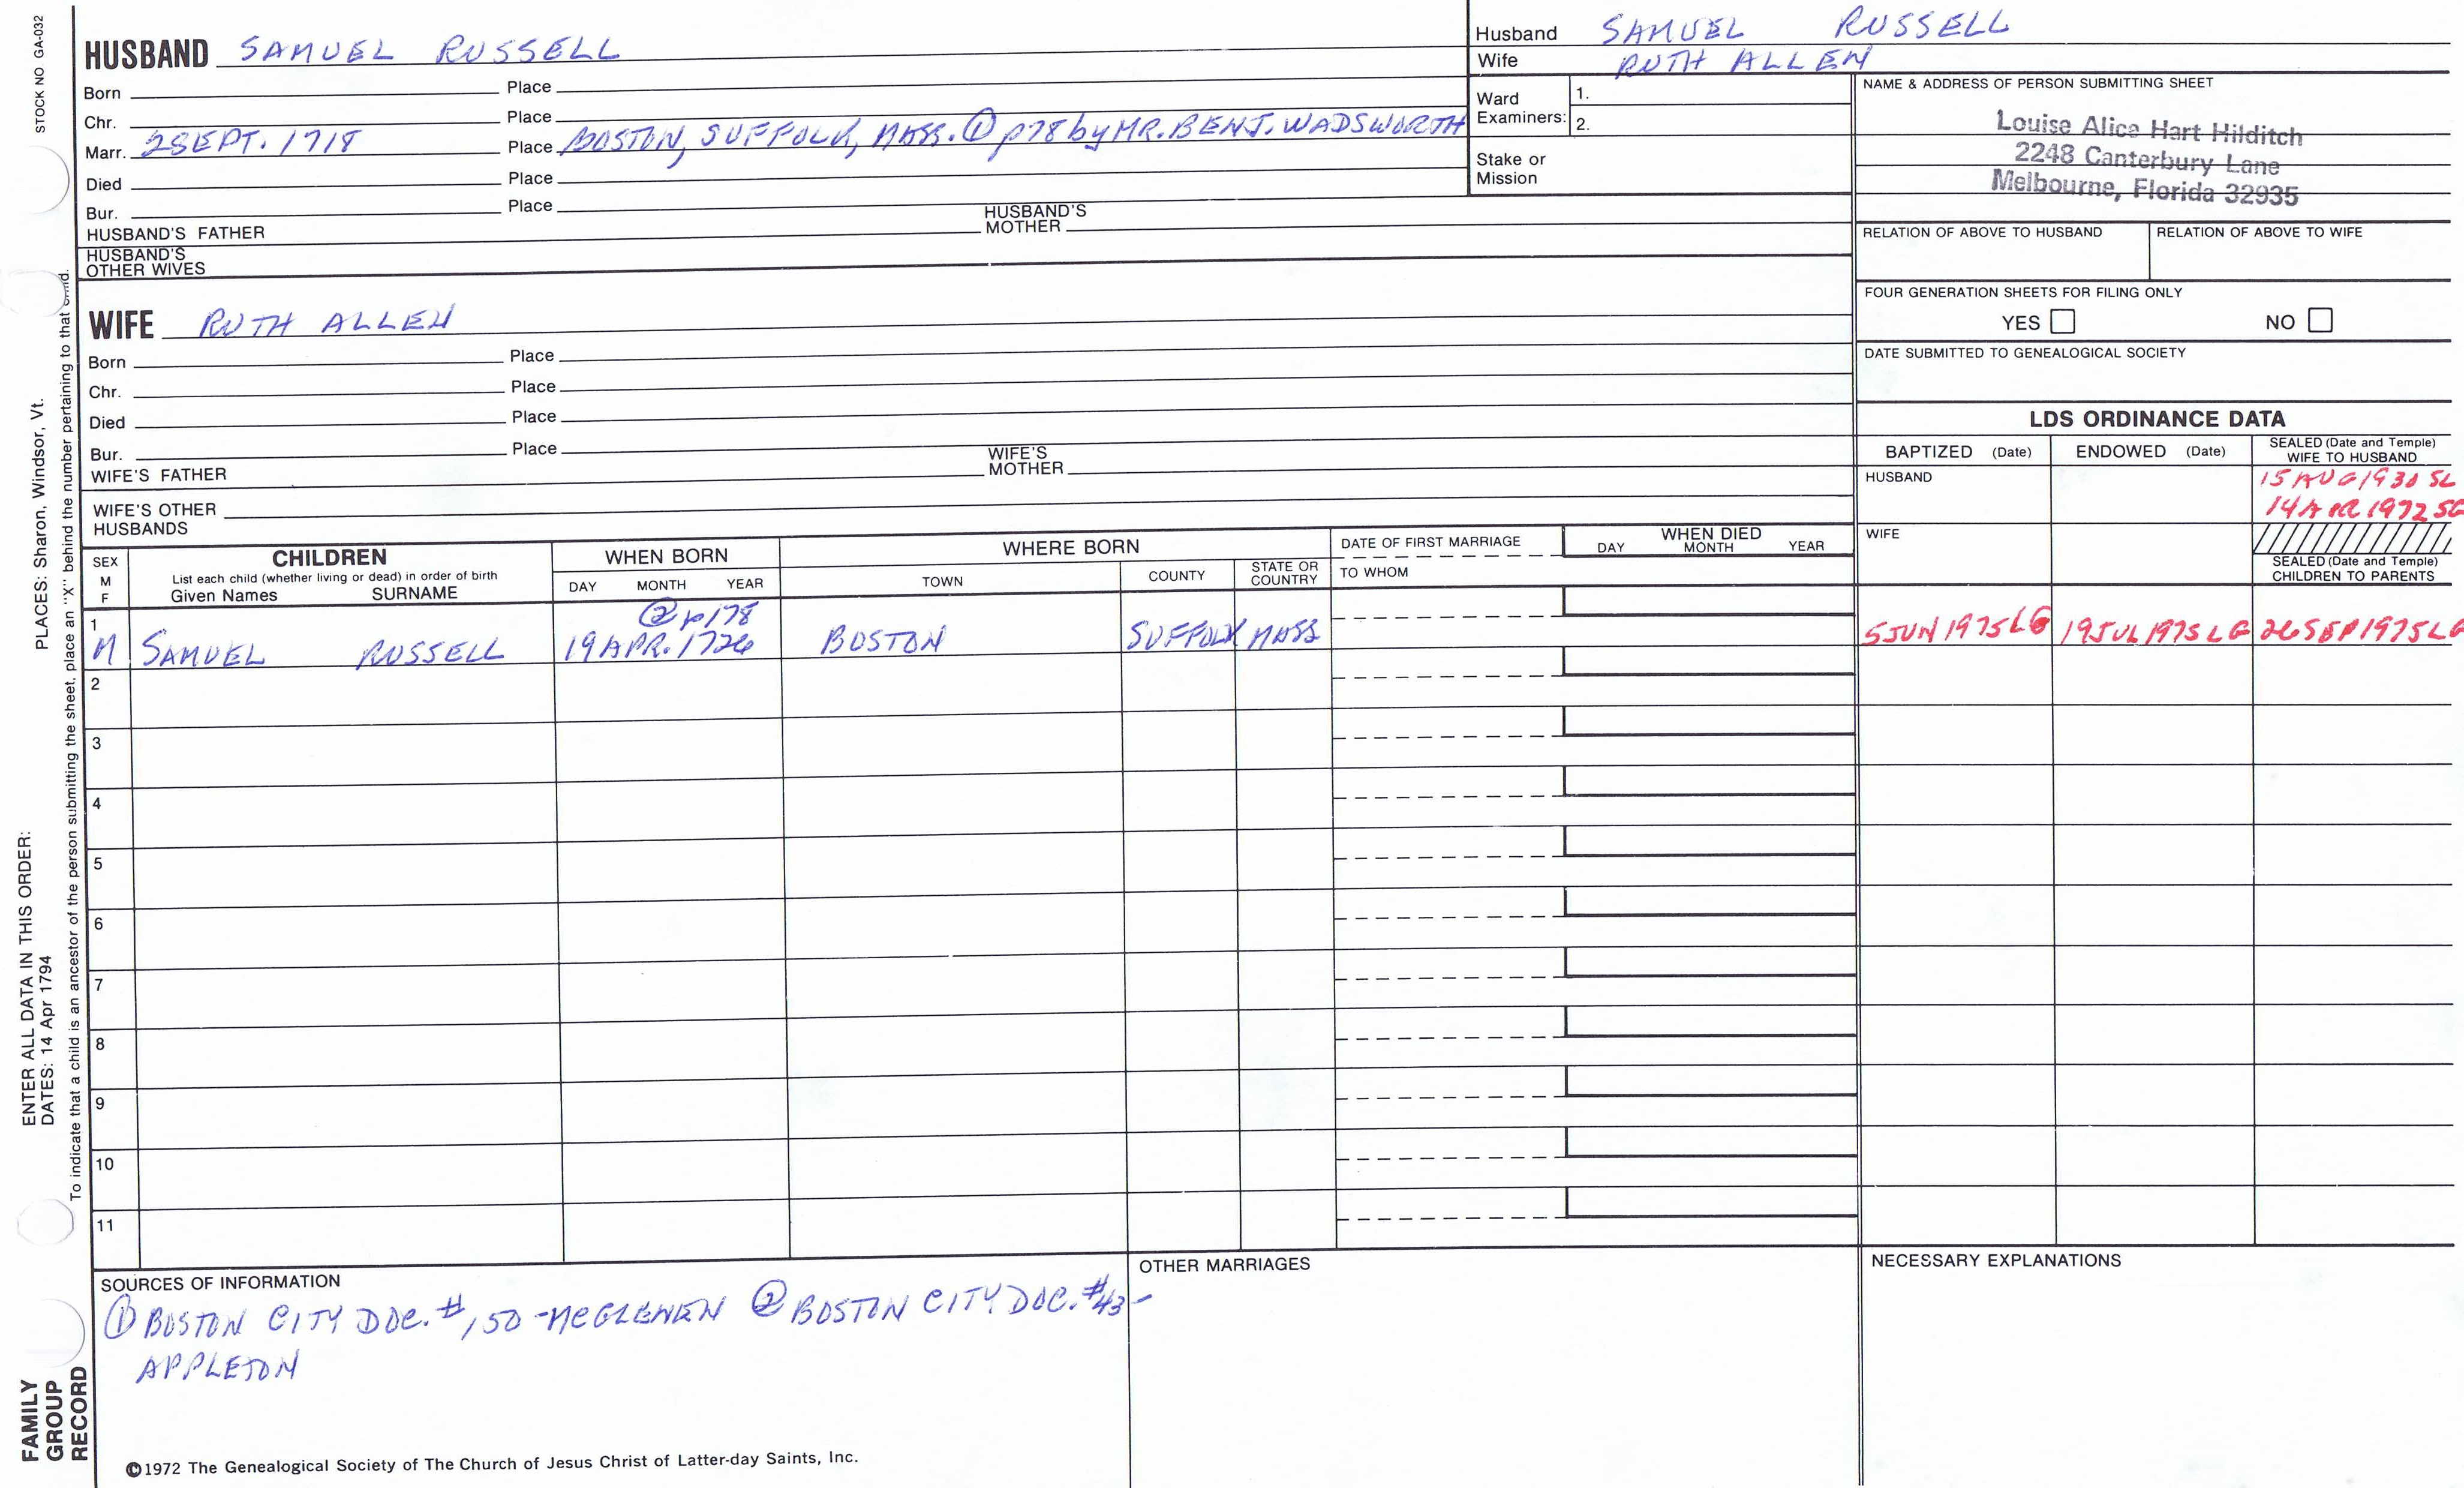 STOCK NO GA-032
HUSBAND SAMUEL RUSSELL
Born Place
Chr. Place
Marr. 2 SEPT. 1718 Place BOSTON, SUFFOLK, MASS. ① p78 by MR. BENJ. WADSWORTH
Died Place
Bur. Place
HUSBAND'S FATHER HUSBAND'S MOTHER
HUSBAND'S OTHER WIVES
Husband SAMUEL RUSSELL
Wife RUTH ALLEN
Ward Examiners: 1.
2.
Stake or Mission
NAME & ADDRESS OF PERSON SUBMITTING SHEET
Louise Alice Hart Hilditch
2248 Canterbury Lane
Melbourne, Florida 32935
RELATION OF ABOVE TO HUSBAND RELATION OF ABOVE TO WIFE
FOUR GENERATION SHEETS FOR FILING ONLY
YES NO
DATE SUBMITTED TO GENEALOGICAL SOCIETY
WIFE RUTH ALLEN
Born Place
Chr. Place
Died Place
Bur. Place
WIFE'S FATHER WIFE'S MOTHER
WIFE'S OTHER HUSBANDS
LDS ORDINANCE DATA
BAPTIZED (Date) ENDOWED (Date) SEALED (Date and Temple) WIFE TO HUSBAND
HUSBAND 15 AUG 1930 SL
14 APR 1972 SG
WIFE
SEALED (Date and Temple)
CHILDREN TO PARENTS
SEX M F CHILDREN WHEN BORN WHERE BORN DATE OF FIRST MARRIAGE WHEN DIED
List each child (whether living or dead) in order of birth
Given Names SURNAME DAY MONTH YEAR TOWN COUNTY STATE OR COUNTRY TO WHOM DAY MONTH YEAR
② p178
1 M SAMUEL RUSSELL 19 APR. 1726 BOSTON SUFFOLK MASS 5 JUN 1975 LG 19 JUL 1975 LG 26 SEP 1975 LG
2
3
4
5
6
7
8
9
10
11
SOURCES OF INFORMATION
① BOSTON CITY DOC. #150 - MCGLENEN ② BOSTON CITY DOC. #43 -
APPLETON
OTHER MARRIAGES
NECESSARY EXPLANATIONS
©1972 The Genealogical Society of The Church of Jesus Christ of Latter-day Saints, Inc.
ENTER ALL DATA IN THIS ORDER:
DATES: 14 Apr 1794 PLACES: Sharon, Windsor, Vt.
To indicate that a child is an ancestor of the person submitting the sheet, place an "X" behind the number pertaining to that child.
FAMILY
GROUP
RECORD